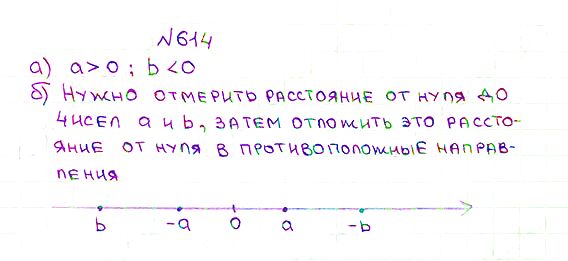 №614
а) a>0; b<0
б) Нужно отмерить расстояние от нуля до
чисел a и b, затем отложить это рассто-
яние от нуля в противоположные направ-
ления
b -a 0 a -b